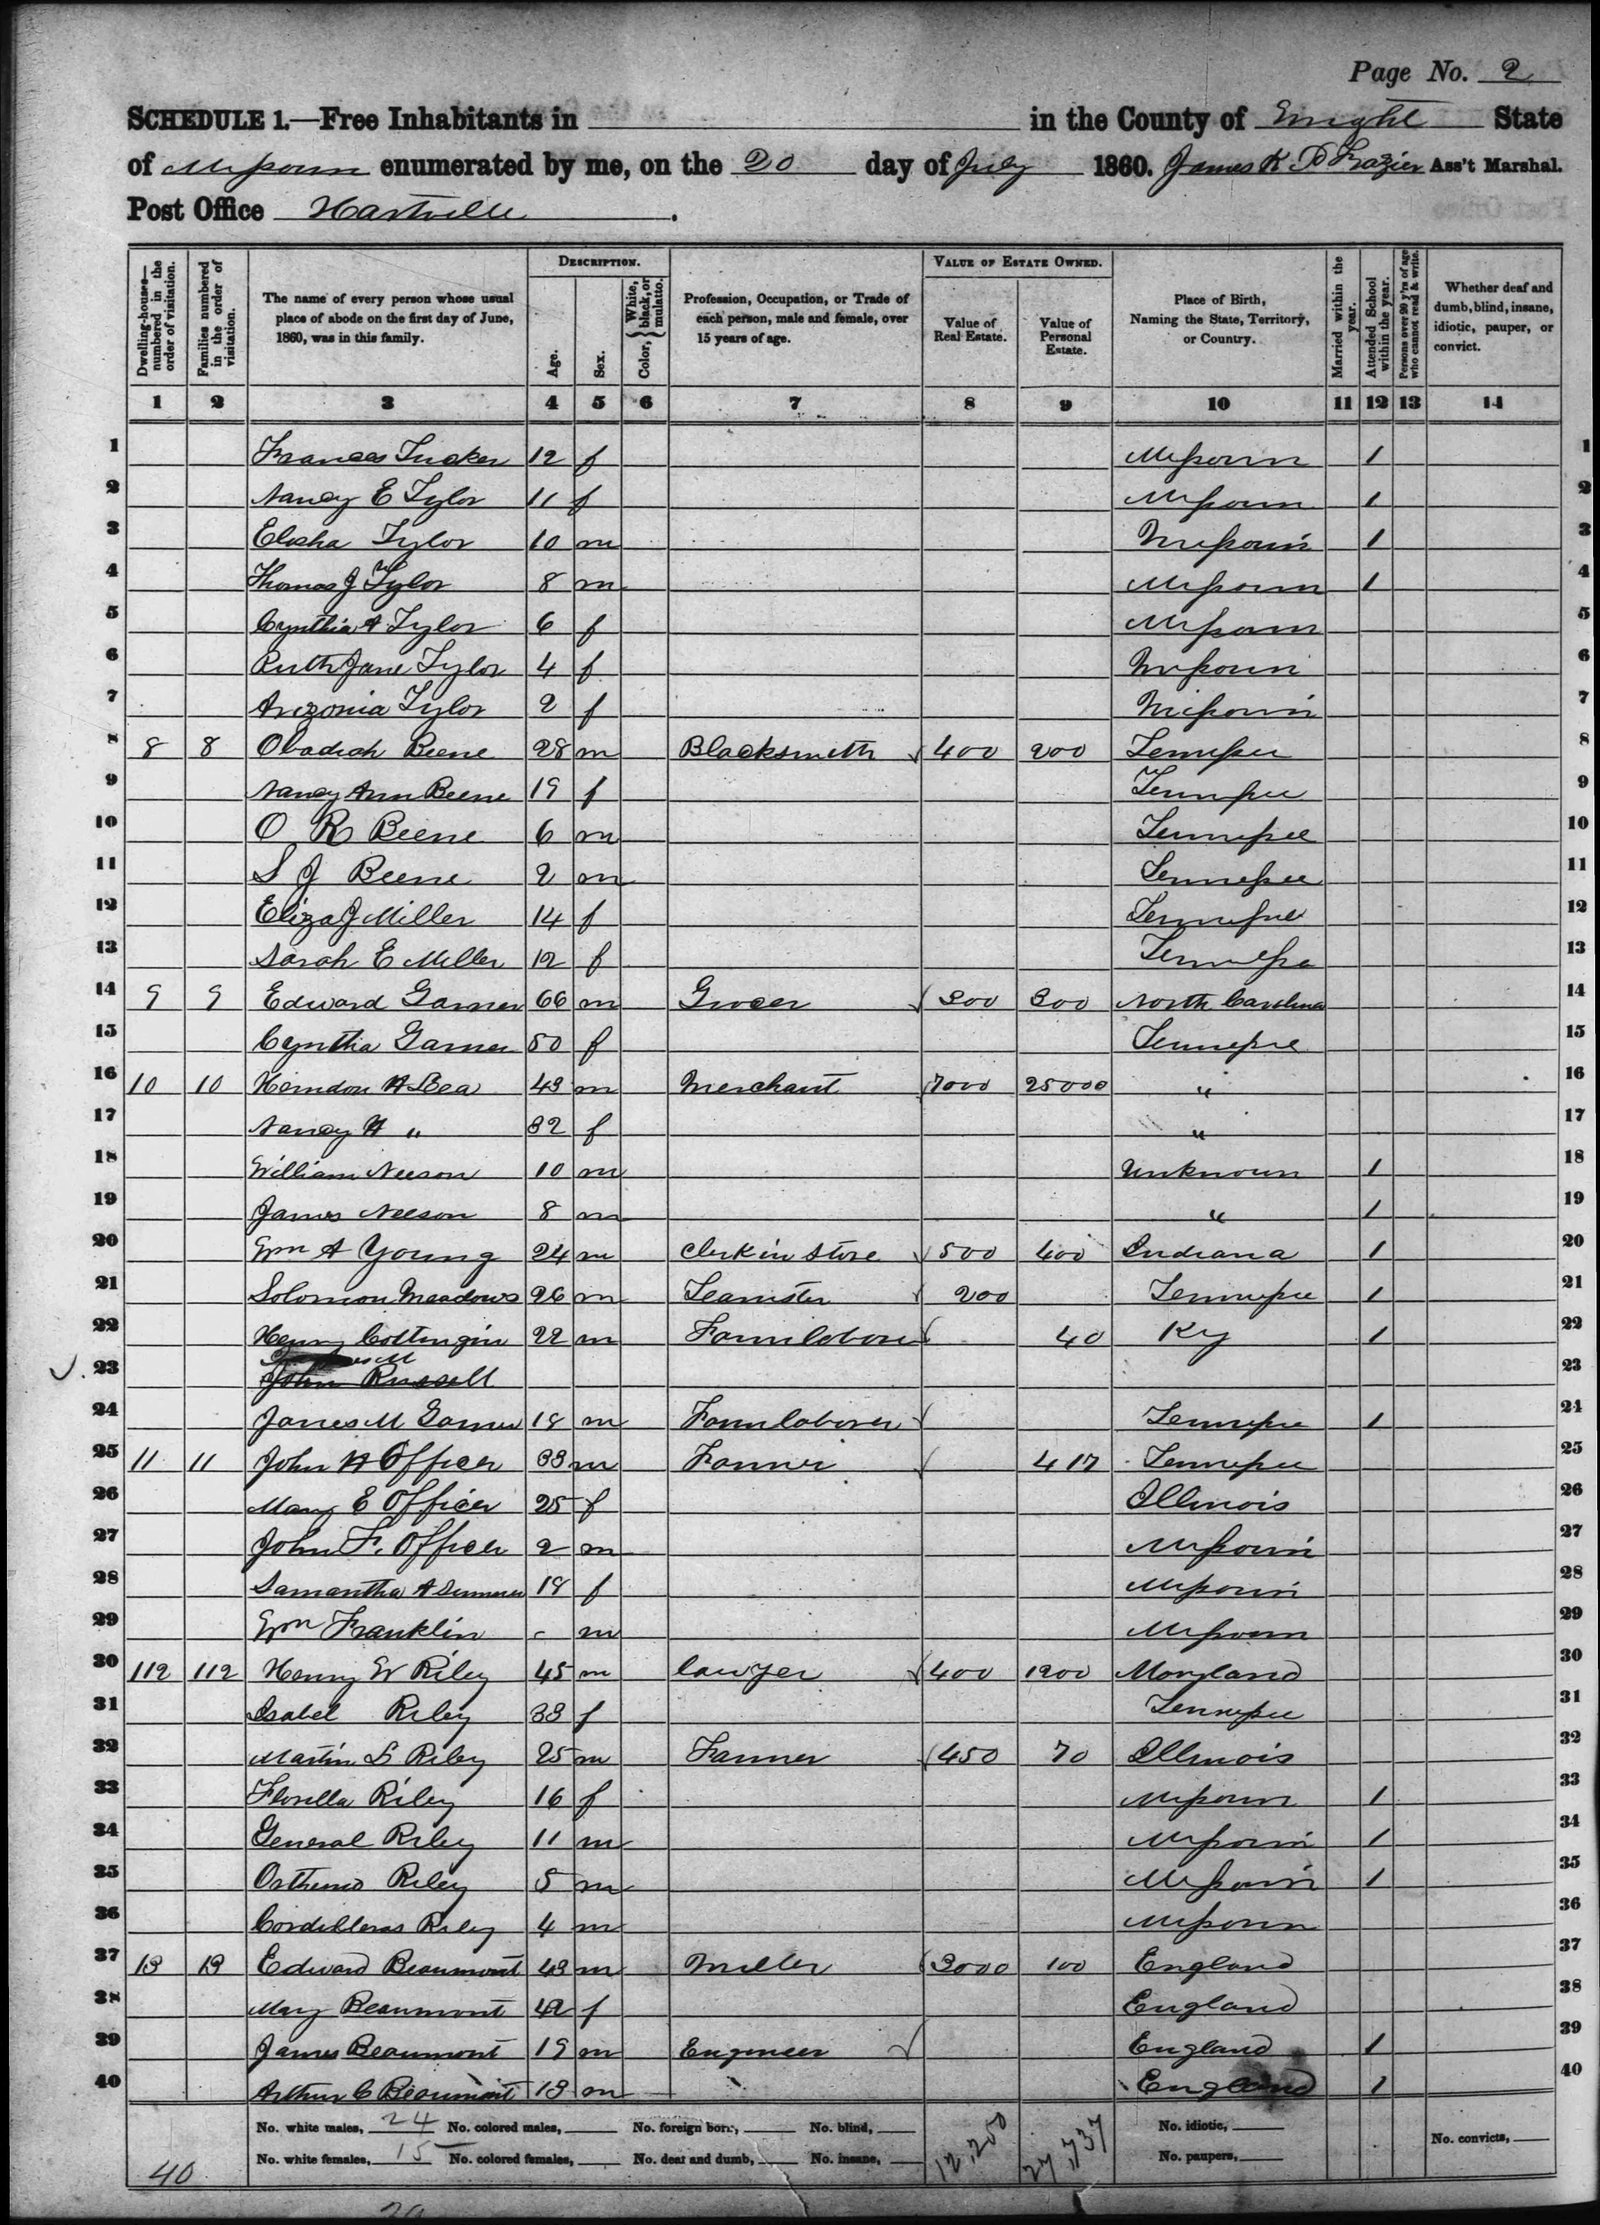 Page No. 2
SCHEDULE 1.—Free Inhabitants in in the County of Wright State
of Missouri enumerated by me, on the 20 day of July 1860. James K. P. Frazier Ass't Marshal.
Post Office Hartville.
DESCRIPTION. VALUE OF ESTATE OWNED.
Dwelling-houses—numbered in the order of visitation. Families numbered in the order of visitation. The name of every person whose usual place of abode on the first day of June, 1860, was in this family. Age. Sex. Color, {White, black, or mulatto. Profession, Occupation, or Trade of each person, male and female, over 15 years of age. Value of Real Estate. Value of Personal Estate. Place of Birth, Naming the State, Territory, or Country. Married within the year. Attended School within the year. Persons over 20 y'rs of age who cannot read & write. Whether deaf and dumb, blind, insane, idiotic, pauper, or convict.
1 2 3 4 5 6 7 8 9 10 11 12 13 14
1 Frances Tucker 12 f Missouri 1 1
2 Nancy E Tylor 11 f Missouri 1 2
3 Elisha Tylor 10 m Missouri 1 3
4 Thomas J Tylor 8 m Missouri 1 4
5 Cynthia A Tylor 6 f Missouri 5
6 Ruth Jane Tylor 4 f Missouri 6
7 Arizonia Tylor 2 f Missouri 7
8 8 8 Obadiah Beene 28 m Blacksmith 400 200 Tennessee 8
9 Nancy Ann Beene 19 f Tennessee 9
10 O R Beene 6 m Tennessee 10
11 S J Beene 2 m Tennessee 11
12 Eliza J Miller 14 f Tennessee 12
13 Sarah E Miller 12 f Tennessee 13
14 9 9 Edward Garner 66 m Grocer 300 300 North Carolina 14
15 Cyntha Garner 50 f Tennessee 15
16 10 10 Herndon A Lea 43 m Merchant 7000 25000 " 16
17 Nancy A " 32 f " 17
18 William Neeson 10 m Unknown 1 18
19 James Neeson 8 m " 1 19
20 Wm A Young 24 m Clerk in Store 500 400 Indiana 1 20
21 Solomon Meadows 26 m Teamster 200 Tennessee 1 21
22 Henry Cottingin 22 m Farm laborer 40 Ky 1 22
23 John Russell 23
24 James M Garner 18 m Farm laborer Tennessee 1 24
25 11 11 John A Officer 33 m Farmer 417 Tennessee 25
26 Mary E Officer 25 f Illinois 26
27 John F. Officer 2 m Missouri 27
28 Samantha A 18 f Missouri 28
29 Wm Franklin - m Missouri 29
30 112 112 Henry W Riley 45 m lawyer 400 1200 Maryland 30
31 Isabel Riley 33 f Tennessee 31
32 Martin L Riley 25 m Farmer 450 70 Illinois 32
33 Florella Riley 16 f Missouri 1 33
34 General Riley 11 m Missouri 1 34
35 Riley 5 m Missouri 1 35
36 Cordilleras Riley 4 m Missouri 36
37 13 13 Edward Beaumont 43 m Miller 3000 100 England 37
38 Mary Beaumont 42 f England 38
39 James Beaumont 19 m Engineer England 1 39
40 Arthur C Beaumont 13 m England 1 40
No. white males, 24 No. colored males, No. foreign born, No. blind, 12,250 27,737 No. idiotic,
No. white females, 15 No. colored females, No. deaf and dumb, No. insane, No. paupers, No. convicts,
40